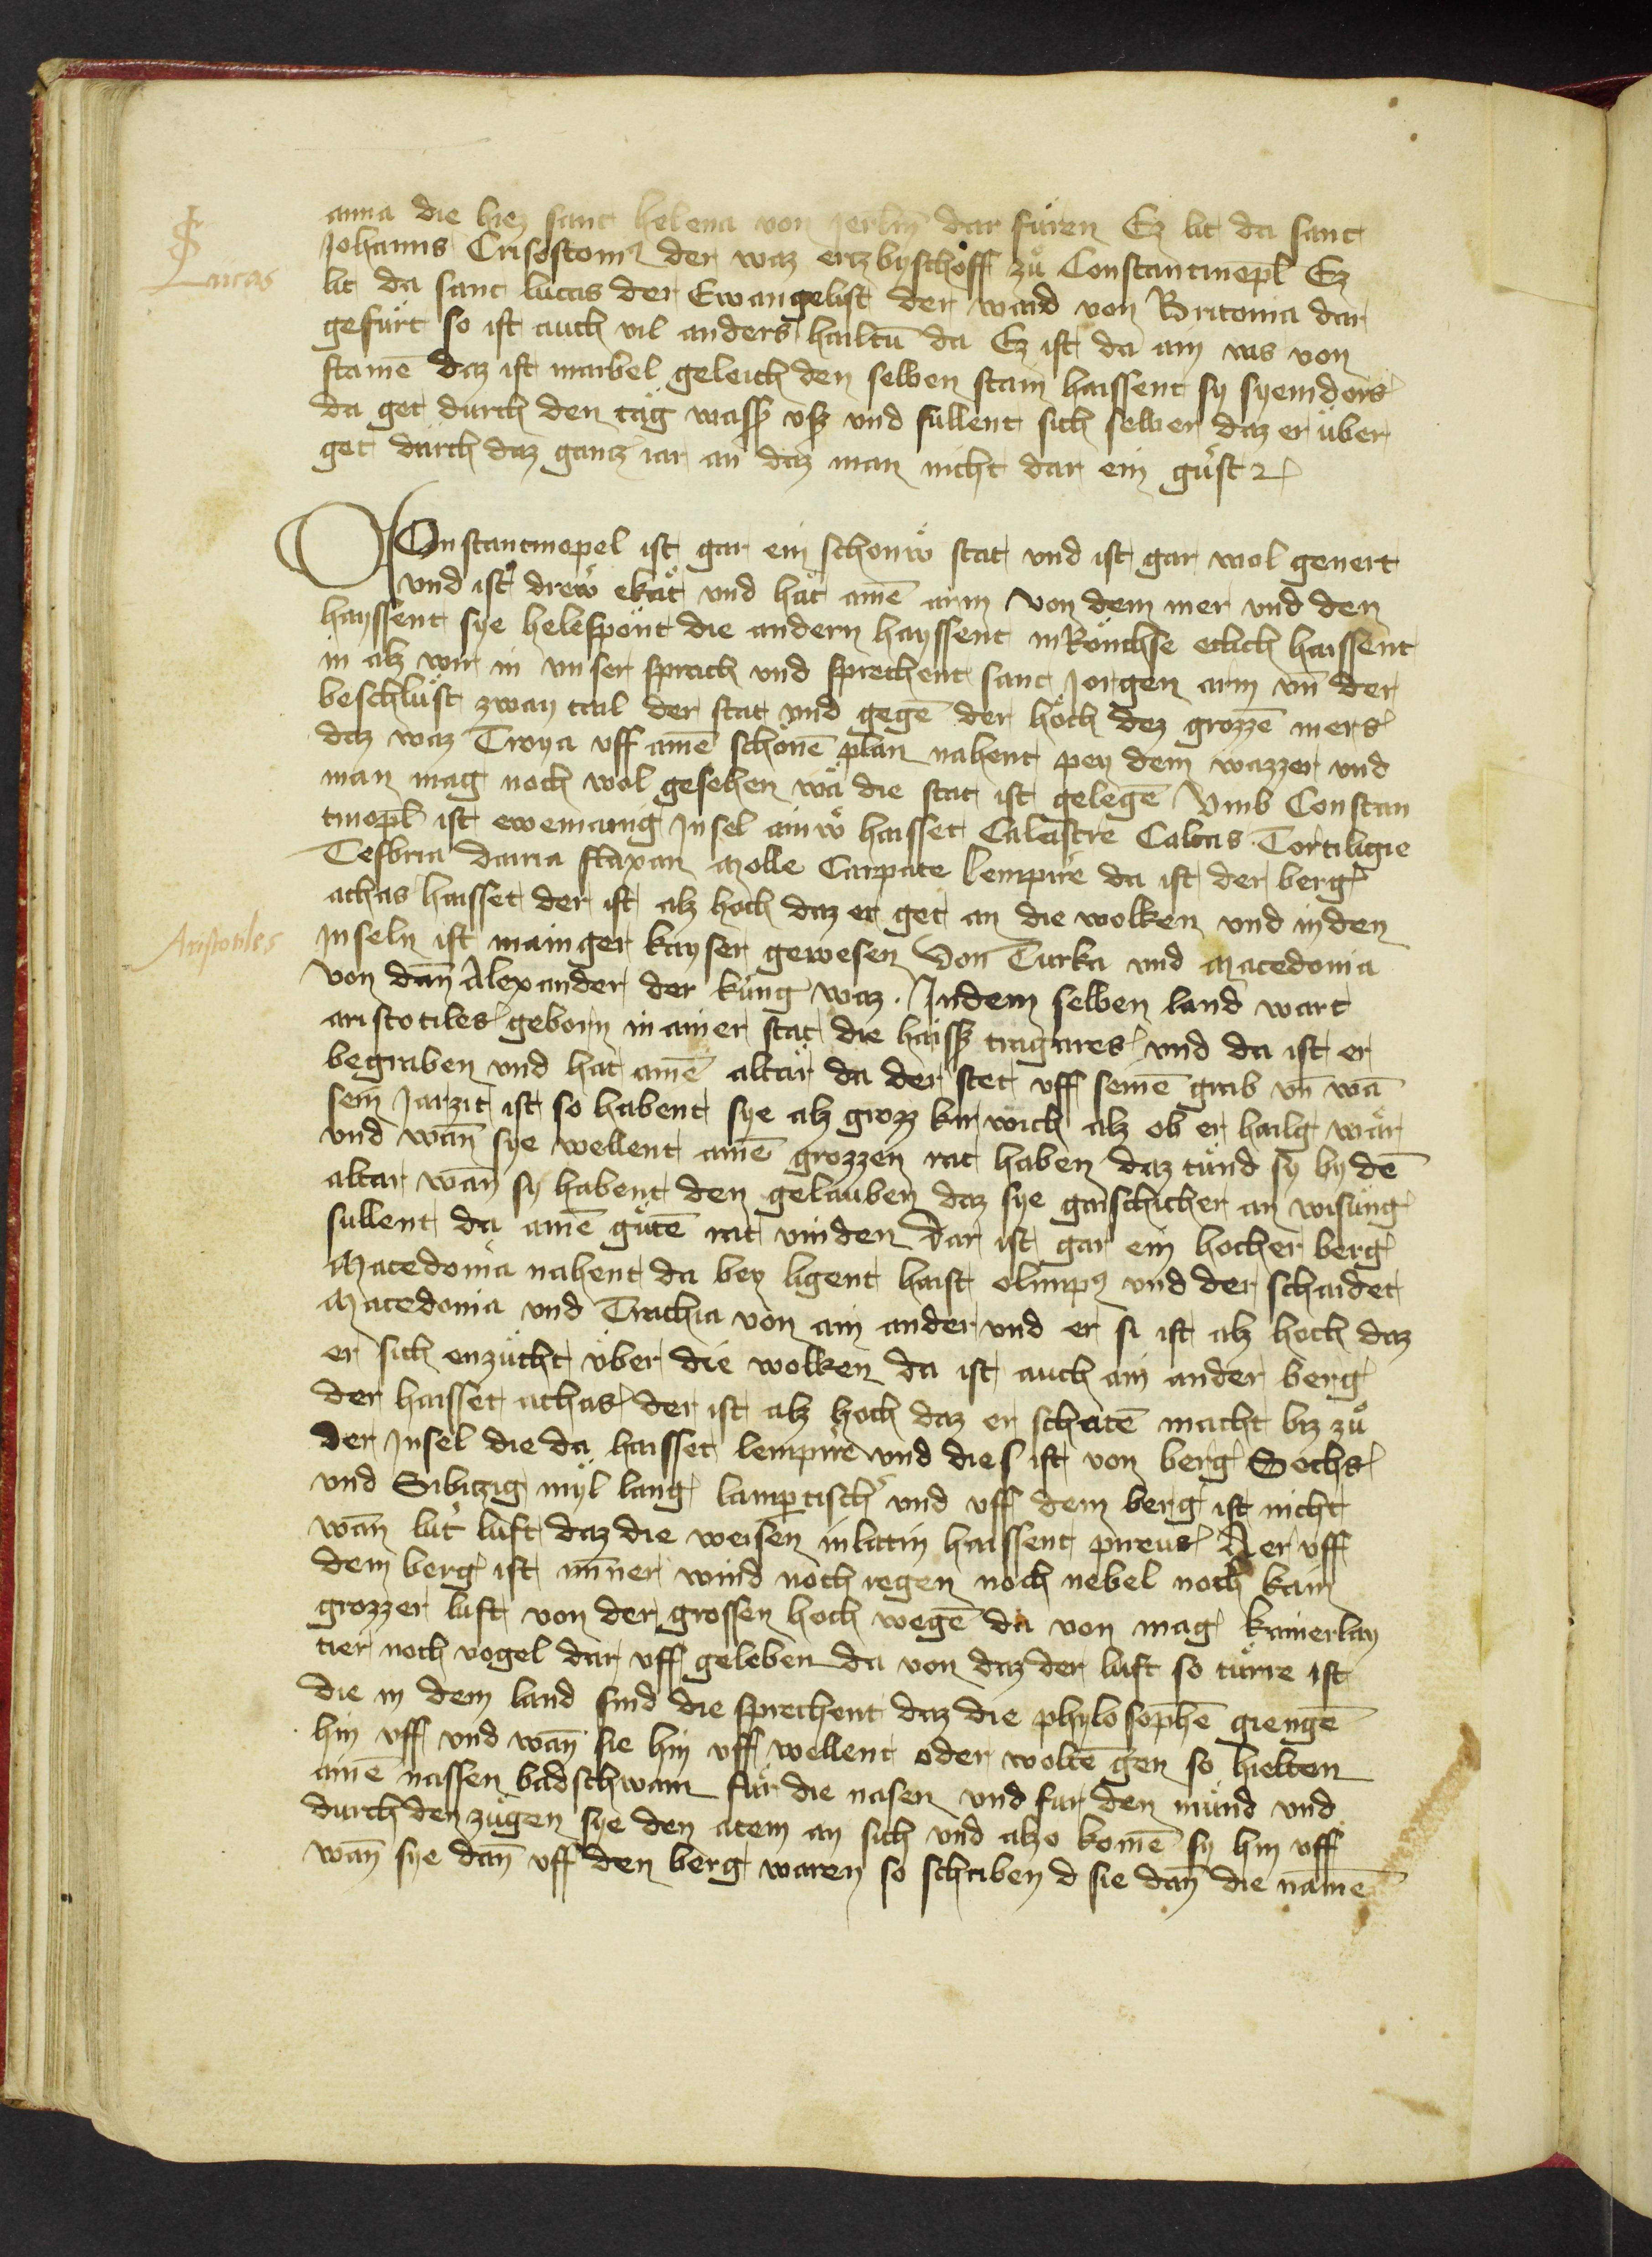 S
Lucas
anna die hiez sant helena von jerlm̄ dar fuͤren Ez lit da sant
Johanns Crisostomꝰ der waz ertzbyschoff zuͦ Constantinopl Ez
lit da sant lucas der Ewangelist der ward von Britonia dar
gefuͤrt so ist auch vil anders hailtū da Ez ist da ain vas von
stainē daz ist marbel geleich den selben stain haissent sy syemdors
da get durch den tag wasſ vſz vnd füllent sich selber daz er über
get durch daz gantz iar an daz man nicht dar ein guͤst
COnstantinopel ist gar ein schonw̋ stat vnd ist gar wol genert
vnd ist drew ekat vnd hat ainē arm von dem mer vnd den
hayssent sye helespont die andern hayssent in Rönchse etlich haissent
in alz wir in vnser sprach vnd sprechent sant Jorgen arm vn̄ der
beschlust zway tail der stat vnd gegē der hoͤch dez grozzē mers
daz waz Troya vff ainē schönē plan nahent pey dem wazzer vnd
man mag noch wol gesehen wa die stat ist gelegē Vmb Constan
tinopl ist ewemanig Insel ainw̋ haisset Calastre Calcas Tortiligie
Tesbria daria flaxan Molle Carpate lempire da ist der berg
athas haisset der ist alz hoch daz er get an die wolken vnd in den
Aristotiles
Inseln ist mainger kayser gewesen Von Turka vnd Macedonia
von dan̄ Alexander der kung waz. In dem selben land wart
aristotiles geborn in ainer stat die haisſz tragares vnd da ist er
begraben vnd hat ainē altar da der stet vff seinē grab vn̄ wā
sein Jarzit ist so habent sye alz grozz kirwich alz ob er hailg waͤr
vnd wan̄ sye wellent ainē grozzen rat haben daz tuͦnd sy by dē
altar wan̄ sy habent den gelauben daz sye gaischicher an wisung
sullent da ainē guͦtē rat vinden dar ist gar ein hocher berg
Macedonia nahent da bey ligent haist olimpꝰ vnd der schaidet
Macedonia vnd Trachia von ain ander vnd er si ist alz hoch daz
er sich enzuͤcht über die wolken da ist auch ain ander berg
der haisset athas der ist alz hoch daz er schatē macht biz zuͦ
der Insel die da haisset lempire vnd dies ist von berg Sechs
vnd Sibitzig myl lang lampartisch vnd vff dem berg ist nicht
wan̄ lut̕ luft daz die weisen in latin haissent pireus Aer vff
dem berg ist nīmer wind noch regen noch nebel noch kain
grozzer luft von der grossen hoch wegē da von mag kainerlay
tier noch vogel dar vff geleben da von daz der luft so tuͤrre ist
die in dem land sind die sprechent daz die phylosophē giengē
hin vff vnd wan̄ sie hin vff wellent oder woltē gen so hielten
ainē nassen badschwam fuͤr die nasen vnd fur den mund vnd
durch den zugen sye den atem an sich vnd alzo komē sy hin vff
wan̄ sye dan̄ vff den berg waren so schriben d sie dan̄ die namē